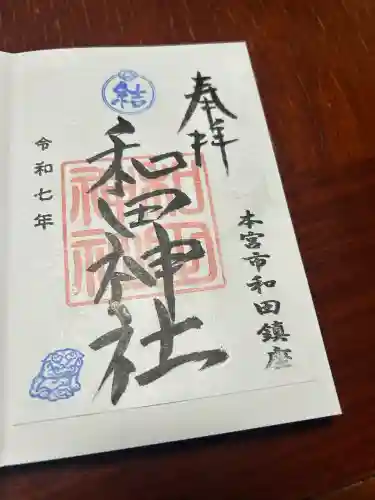 奉拝
本宮市和田鎮座
和田神社
和田神社
結
令和七年